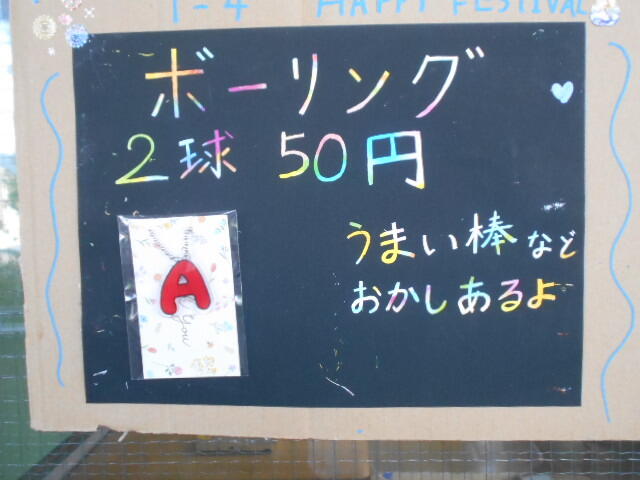 1-4 HAPPY FESTIVAL
ボーリング
2球 50円
うまい棒など
おかしあるよ
A
you